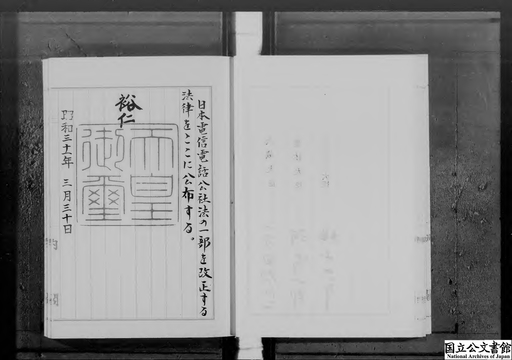 日本電信電話公社法の一部を改正する
法律をここに公布する。
裕仁
天皇
御璽
昭和三十一年 三月三十日
国立公文書館
National Archives of Japan